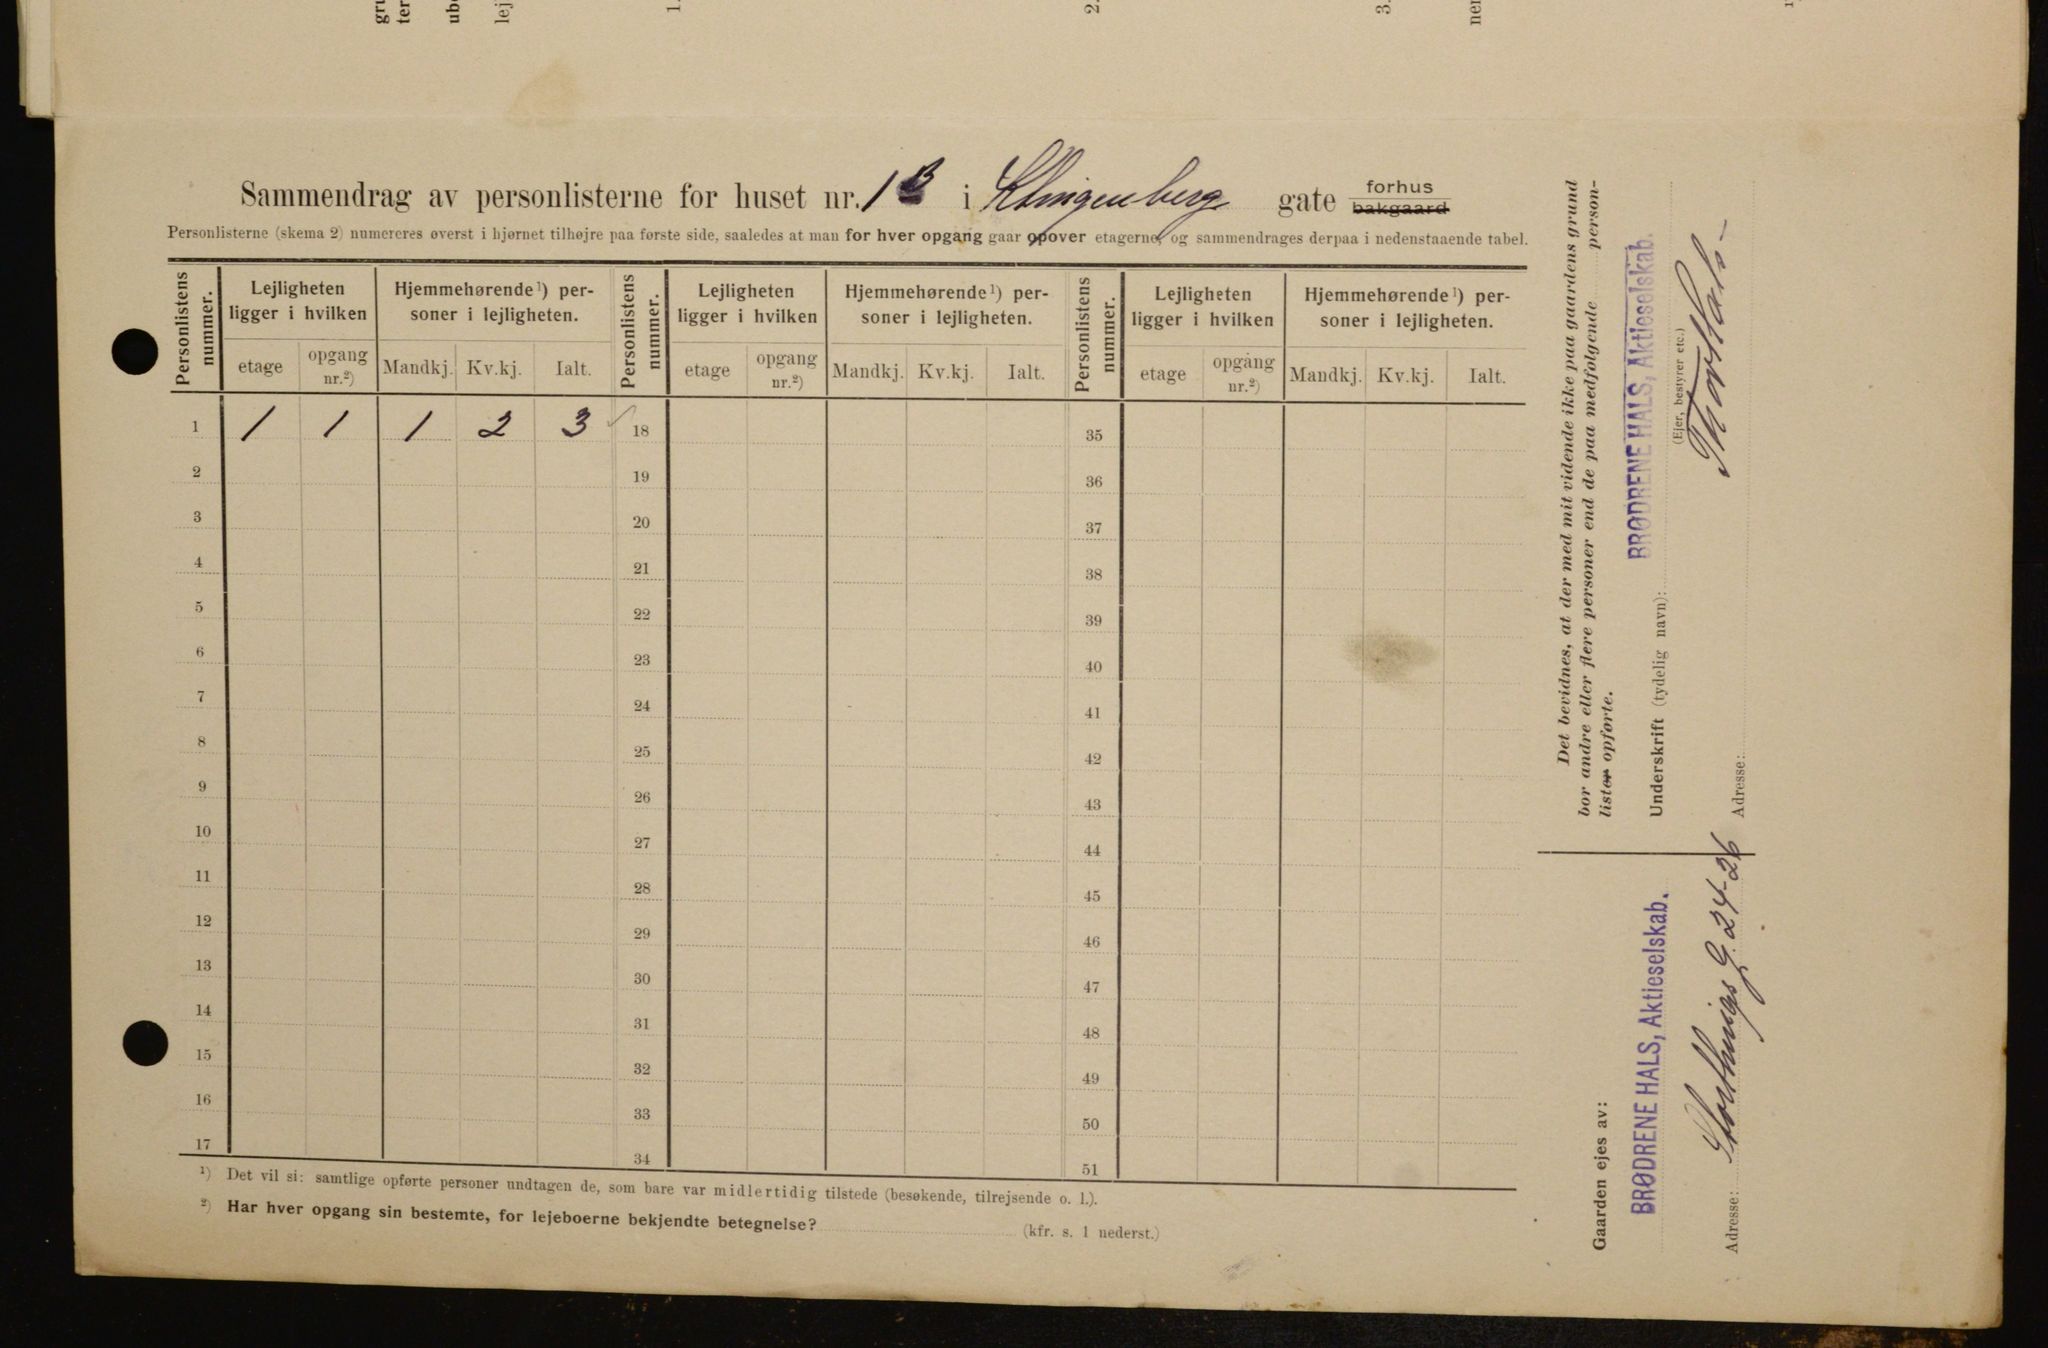 gru
ter
ube
lej
1.
2.
3.
nen
Sammendrag av personlisterne for huset nr. 1 B i Klingenberg gate forhus bakgaard
Personlisterne (skema 2) numereres øverst i hjørnet tilhøjre paa første side, saaledes at man for hver opgang gaar opover etagerne, og sammendrages derpaa i nedenstaaende tabel.
Personlistens nummer. Lejligheten ligger i hvilken Hjemmehørende¹) personer i lejligheten. Personlistens nummer. Lejligheten ligger i hvilken Hjemmehørende¹) personer i lejligheten. Personlistens nummer. Lejligheten ligger i hvilken Hjemmehørende¹) personer i lejligheten.
etage opgang nr.²) Mandkj. Kv.kj. Ialt. etage opgang nr.²) Mandkj. Kv.kj. Ialt. etage opgang nr.²) Mandkj. Kv.kj. Ialt.
1 1 1 1 2 3 18 35
2 19 36
3 20 37
4 21 38
5 22 39
6 23 40
7 24 41
8 25 42
9 26 43
10 27 44
11 28 45
12 29 46
13 30 47
14 31 48
15 32 49
16 33 50
17 34 51
¹) Det vil si: samtlige opførte personer undtagen de, som bare var midlertidig tilstede (besøkende, tilrejsende o. l.).
²) Har hver opgang sin bestemte, for lejeboerne bekjendte betegnelse? (kfr. s. 1 nederst.)
Det bevidnes, at der med mit vidende ikke paa gaardens grund
bor andre eller flere personer end de paa medfølgende person-
lister opførte.
BRØDRENE HALS, Aktieselskab.
Underskrift (tydelig navn):
(Ejer, bestyrer etc.)
Thor Hals
Adresse:
Gaarden ejes av:
BRØDRENE HALS, Aktieselskab.
Adresse: Storthings G. 24-26